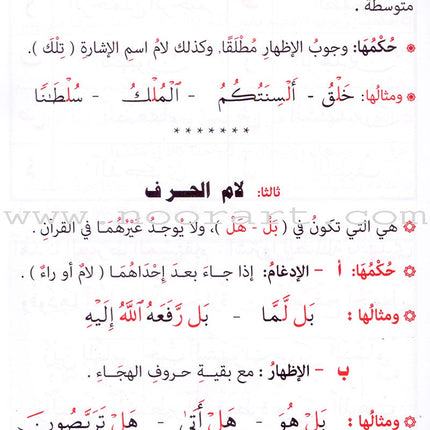 متوسطة .
حُكْمُهَا: وجوبُ الإظهارِ مُطْلَقًا، وكذلك لامُ اسمِ الإشارةِ ( تِلْكَ ) .
ومثالُها: خَلْقُ - أَلْسِنَتُكُمُ - الْمُلْكُ - سُلْطَـٰنًا
*******
ثالثا: لام الحرف
www.noorart.com
هي التي تكونُ في ( بَلْ - هَلْ )، ولا يُوجدُ غَيْرُهُمَا في القرآنِ .
حُكْمُهَا: أ - الإدغامُ: إذا جاءَ بعدَ إِحْدَاهُمَا ( لامٌ أو راءٌ ) .
ومثالُها : بَل لَّمَّا - بَل رَّفَعَهُ ٱللَّهُ إِلَيْهِ
ب - الإظهارُ : مع بقيةِ حروفِ الهجَاءِ .
ومثالُها : بَلْ هُوَ - هَلْ أَتَىٰ - هَلْ تَرَبَّصُونَ